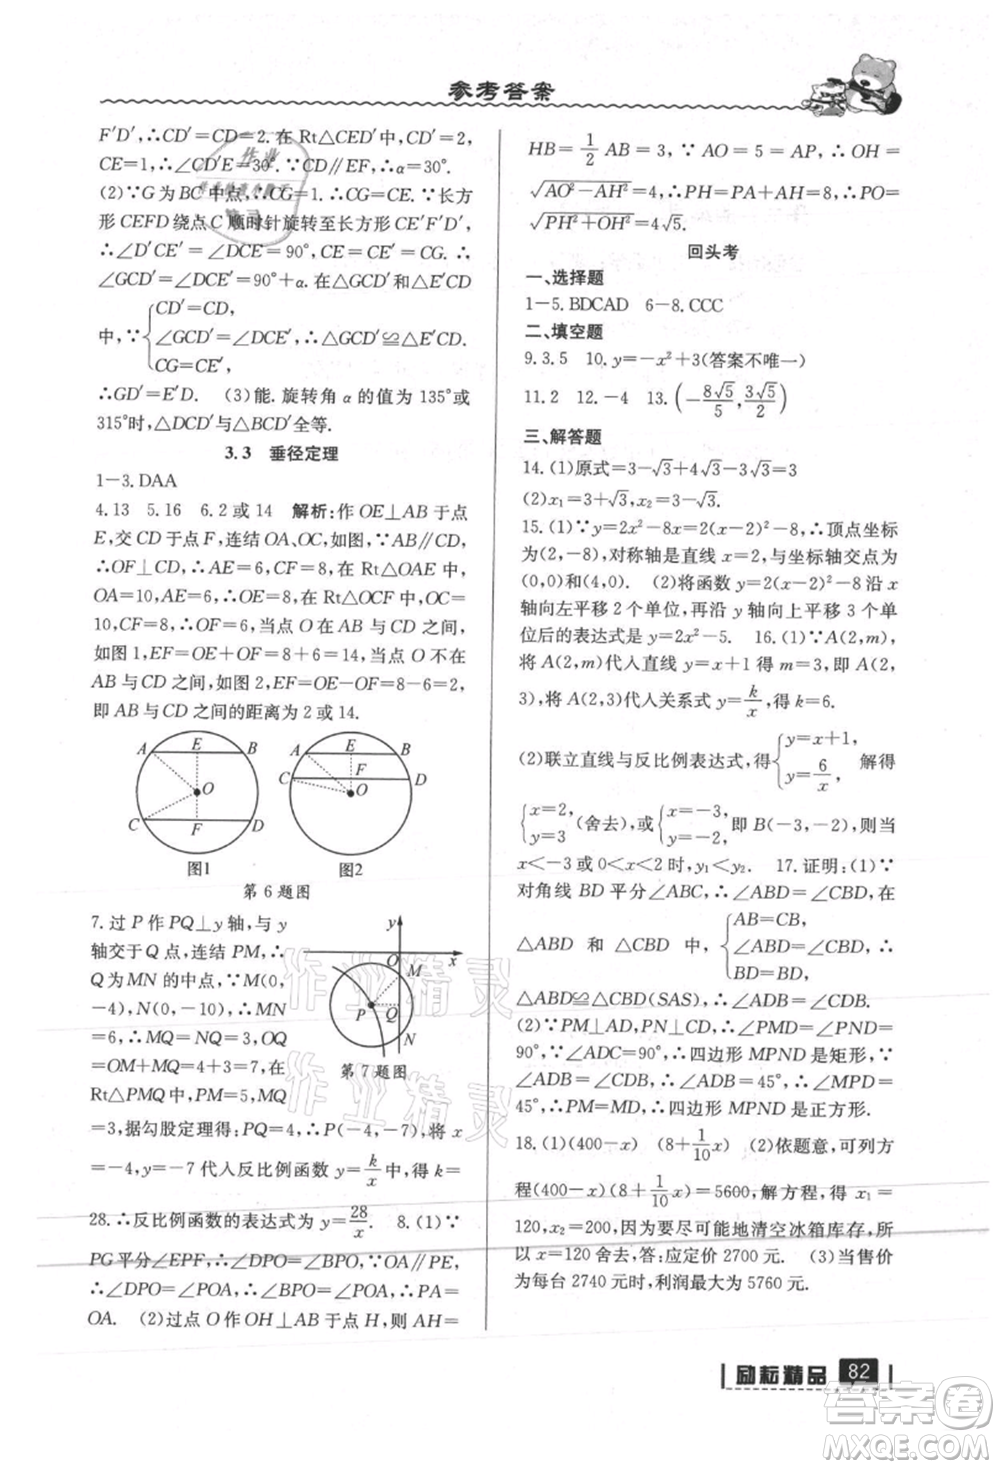 参考答案
F′D′,∴CD′=CD=2. 在 Rt△CED′中,CD′=2,
CE=1,∴∠CD′E=30°. ∵CD∥EF,∴α=30°.
(2)∵G为BC中点,∴CG=CE=1. ∵长方
形 CEFD 绕点C顺时针旋转至长方形 CE′F′D′,
∴∠D′CE′=∠CD′=90°,CE=CE′=CG,
∴∠GCD′=∠DCE′=90°+α. 在△GCD′和△E′CD
中,∵{CD′=CD,
∠GCD′=∠DCE′,∴△GCD′≌△E′CD,
CG=CE′,
∴GD′=E′D. (3)能. 旋转角 α 的值为 135°或
315°时,△DCD′与△BCD′全等.
3.3 垂径定理
1－3. DAA
4. 13 5. 16 6. 2 或 14 解析:作OE⊥AB于点
E,交CD于点F,连结OA、OC,如图,∵AB∥CD,
∴OF⊥CD,∴AE=8,CF=6. 在 Rt△OAE 中,
OA=10,∴OE=6,在 Rt△OCF 中,OC=10,
∴OF=8,∴OF=6,当点 O 在 AB 与 CD 之间时,
如图 1,EF=OE+OF=6+8=14,当点 O 不在
AB 与 CD 之间时,如图 2,EF=OF－OE=8－6=2,
即 AB 与 CD 间的距离为 2 或 14.
A E B
O
C F D
图1
A E B
C F D
O
图2
第 6 题图
7. 过 P 作 PQ⊥y 轴,与 y
轴交于 Q 点,连结 PM,∴
Q为MN的中点,∵M(0,
－4),N(0,－10),∴MN
=6,∴MQ=NQ=3,OQ=
OM+MQ=4+3=7,在
Rt△PMQ 中,PM=5,MQ
=3,据勾股定理得:PQ=4,∴P(－4,－7),将 x
=－4,y=－7 代人反比例函数 y=k/x 中,得 k=
28. ∴反比例函数的表达式为 y=28/x. 8. (1)∵
PG平分∠EPF,∴∠DPO=∠BPO,∵OA∥PE,
∴∠DPO=∠POA,∴∠BPO=∠POA,∴PA=
OA. (2)过点 O 作 OH⊥AB 于点 H,则 AH=
y
O x
M
P Q
N
第 7 题图
HB=1/2 AB=4,∵ AO=5=AP,∴OH=
√AO²－AH²=3,∴PH=PA+AH=8,∴PO=
√PH²+OH²=4√5.
回头考
一、选择题
1－5. BDCAD 6－8. CCC
二、填空题
9. 3.5 10. y=－x²+3(答案不唯一)
11. 2 12. －4 13. (－8√5/5, 3√5/2)
三、解答题
14. (1)原式=3－√3+4×√3/4=3
(2)x₁=3+√3,x₂=3－√3
15. (1)∵y=2x²－8x=2(x－2)²－8,∴顶点坐标
为(2,－8),对称轴是直线 x=2,与坐标轴交点为
(0,0)和(4,0). (2)将函数 y=2(x－2)²－8 沿 x
轴向左平移 2 个单位,再沿 y 轴向上平移 3 个单
位后的表达式为 y=2x²－5. 16. (1)∵A(2,m),
将 A(2,m)代入直线 y=x+1 得 m=3,即 A(2,
3),将 A(2,3)代人关系式 y=k/x,得 k=6.
(2)联立直线与反比例表达式,得{y=x+1,
y=6/x
{x=2,
y=3 (舍去),或{x=－3,
y=－2, 即 B(－3,－2),则当
x<－3或0<x<2时,y₁<y₂. 17. 证明:(1)∵
对角线 BD 平分∠ABC,∴∠ABD=∠CBD,在
△ABD 和 △CBD 中,{AB=CB,
∠ABD=∠CBD,∴
BD=BD,
△ABD≌△CBD(SAS),∴∠ADB=∠CDB.
(2)∵PM⊥AD,PN⊥CD,∴∠PMD=∠PND=
90°,∵∠ADC=90°,∴四边形 MPND 是矩形,∵
∠ADB=∠CDB,∴∠ADB=45°,∴∠MPD=
45°,∴PM=MD,∴四边形 MPND 是正方形.
18. (1)(400－x) (8+1/10x) (2)依题意,可列方
程(400－x)(8+1/10x)=5600,解方程,得 x₁=
120,x₂=200,因为要尽可能地清空冰箱库存,所
以 x=120 舍去,答:应定价 2700 元. (3)当售价
为每台 2740 元时,利润最大为 5760 元.
励耘精品 82
作业精灵
作业精灵
答案圈
MXQE.COM